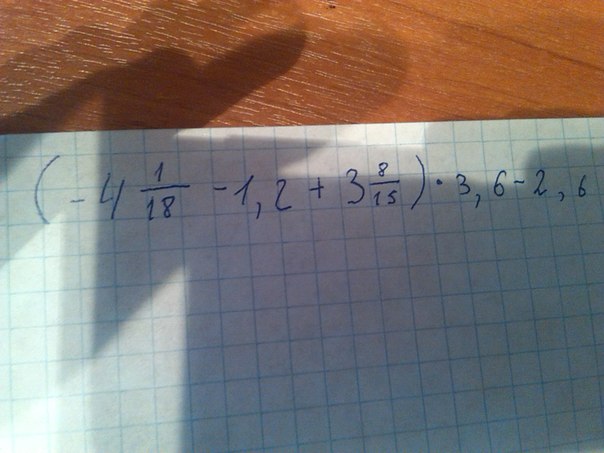 (-4 1/18 - 1,2 + 3 8/15) · 3,6 - 2,6